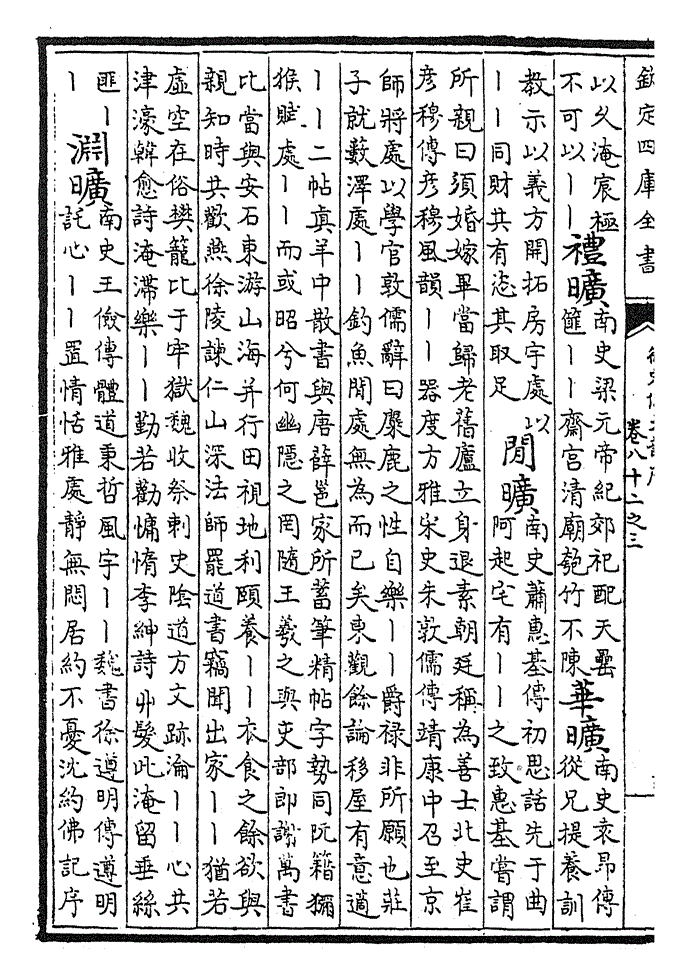 欽定四庫全書
卷八十二之三
以久淹宸極
不可以丨丨
禮曠
南史梁元帝紀郊祀配天罍
篚丨丨齋宮清廟匏竹不陳
華曠
南史袁昂傳
從兄提養訓
教示以義方開拓房宇處以
丨丨同財共有恣其取足
閒曠
南史蕭惠基傳初思話先于曲
阿起宅有丨丨之致惠基嘗謂
所親曰須婚嫁畢當歸老舊廬立身退素朝廷稱為善士北史崔
彦穆傳彦穆風韻丨丨器度方雅宋史朱敦儒傳靖康中召至京
師將處以學官敦儒辭曰麋鹿之性自樂丨丨爵禄非所願也莊
子就數澤處丨丨釣魚閒處無為而已矣東觀餘論移屋有意適
丨丨二帖真羊中散書與唐薛邕家所蓄筆精帖字勢同阮籍獼
猴賦處丨丨而或昭兮何幽隱之罔隨王羲之與吏部郎謝萬書
比當與安石東游山海并行田視地利頤養丨丨衣食之餘欲與
親知時共歡燕徐陵諫仁山深法師罷道書竊聞出家丨丨猶若
虛空在俗樊籠比于牢獄魏收祭刺史陰道方文跡淪丨丨心共
津濠韓愈詩淹滯樂丨丨勤若勸慵惰李紳詩艸髮此淹留垂絲
匪丨
丨
淵曠
南史王儉傳體道秉哲風宇丨丨魏書徐遵明傳遵明
託心丨丨置情恬雅處靜無悶居約不憂沈約佛記序